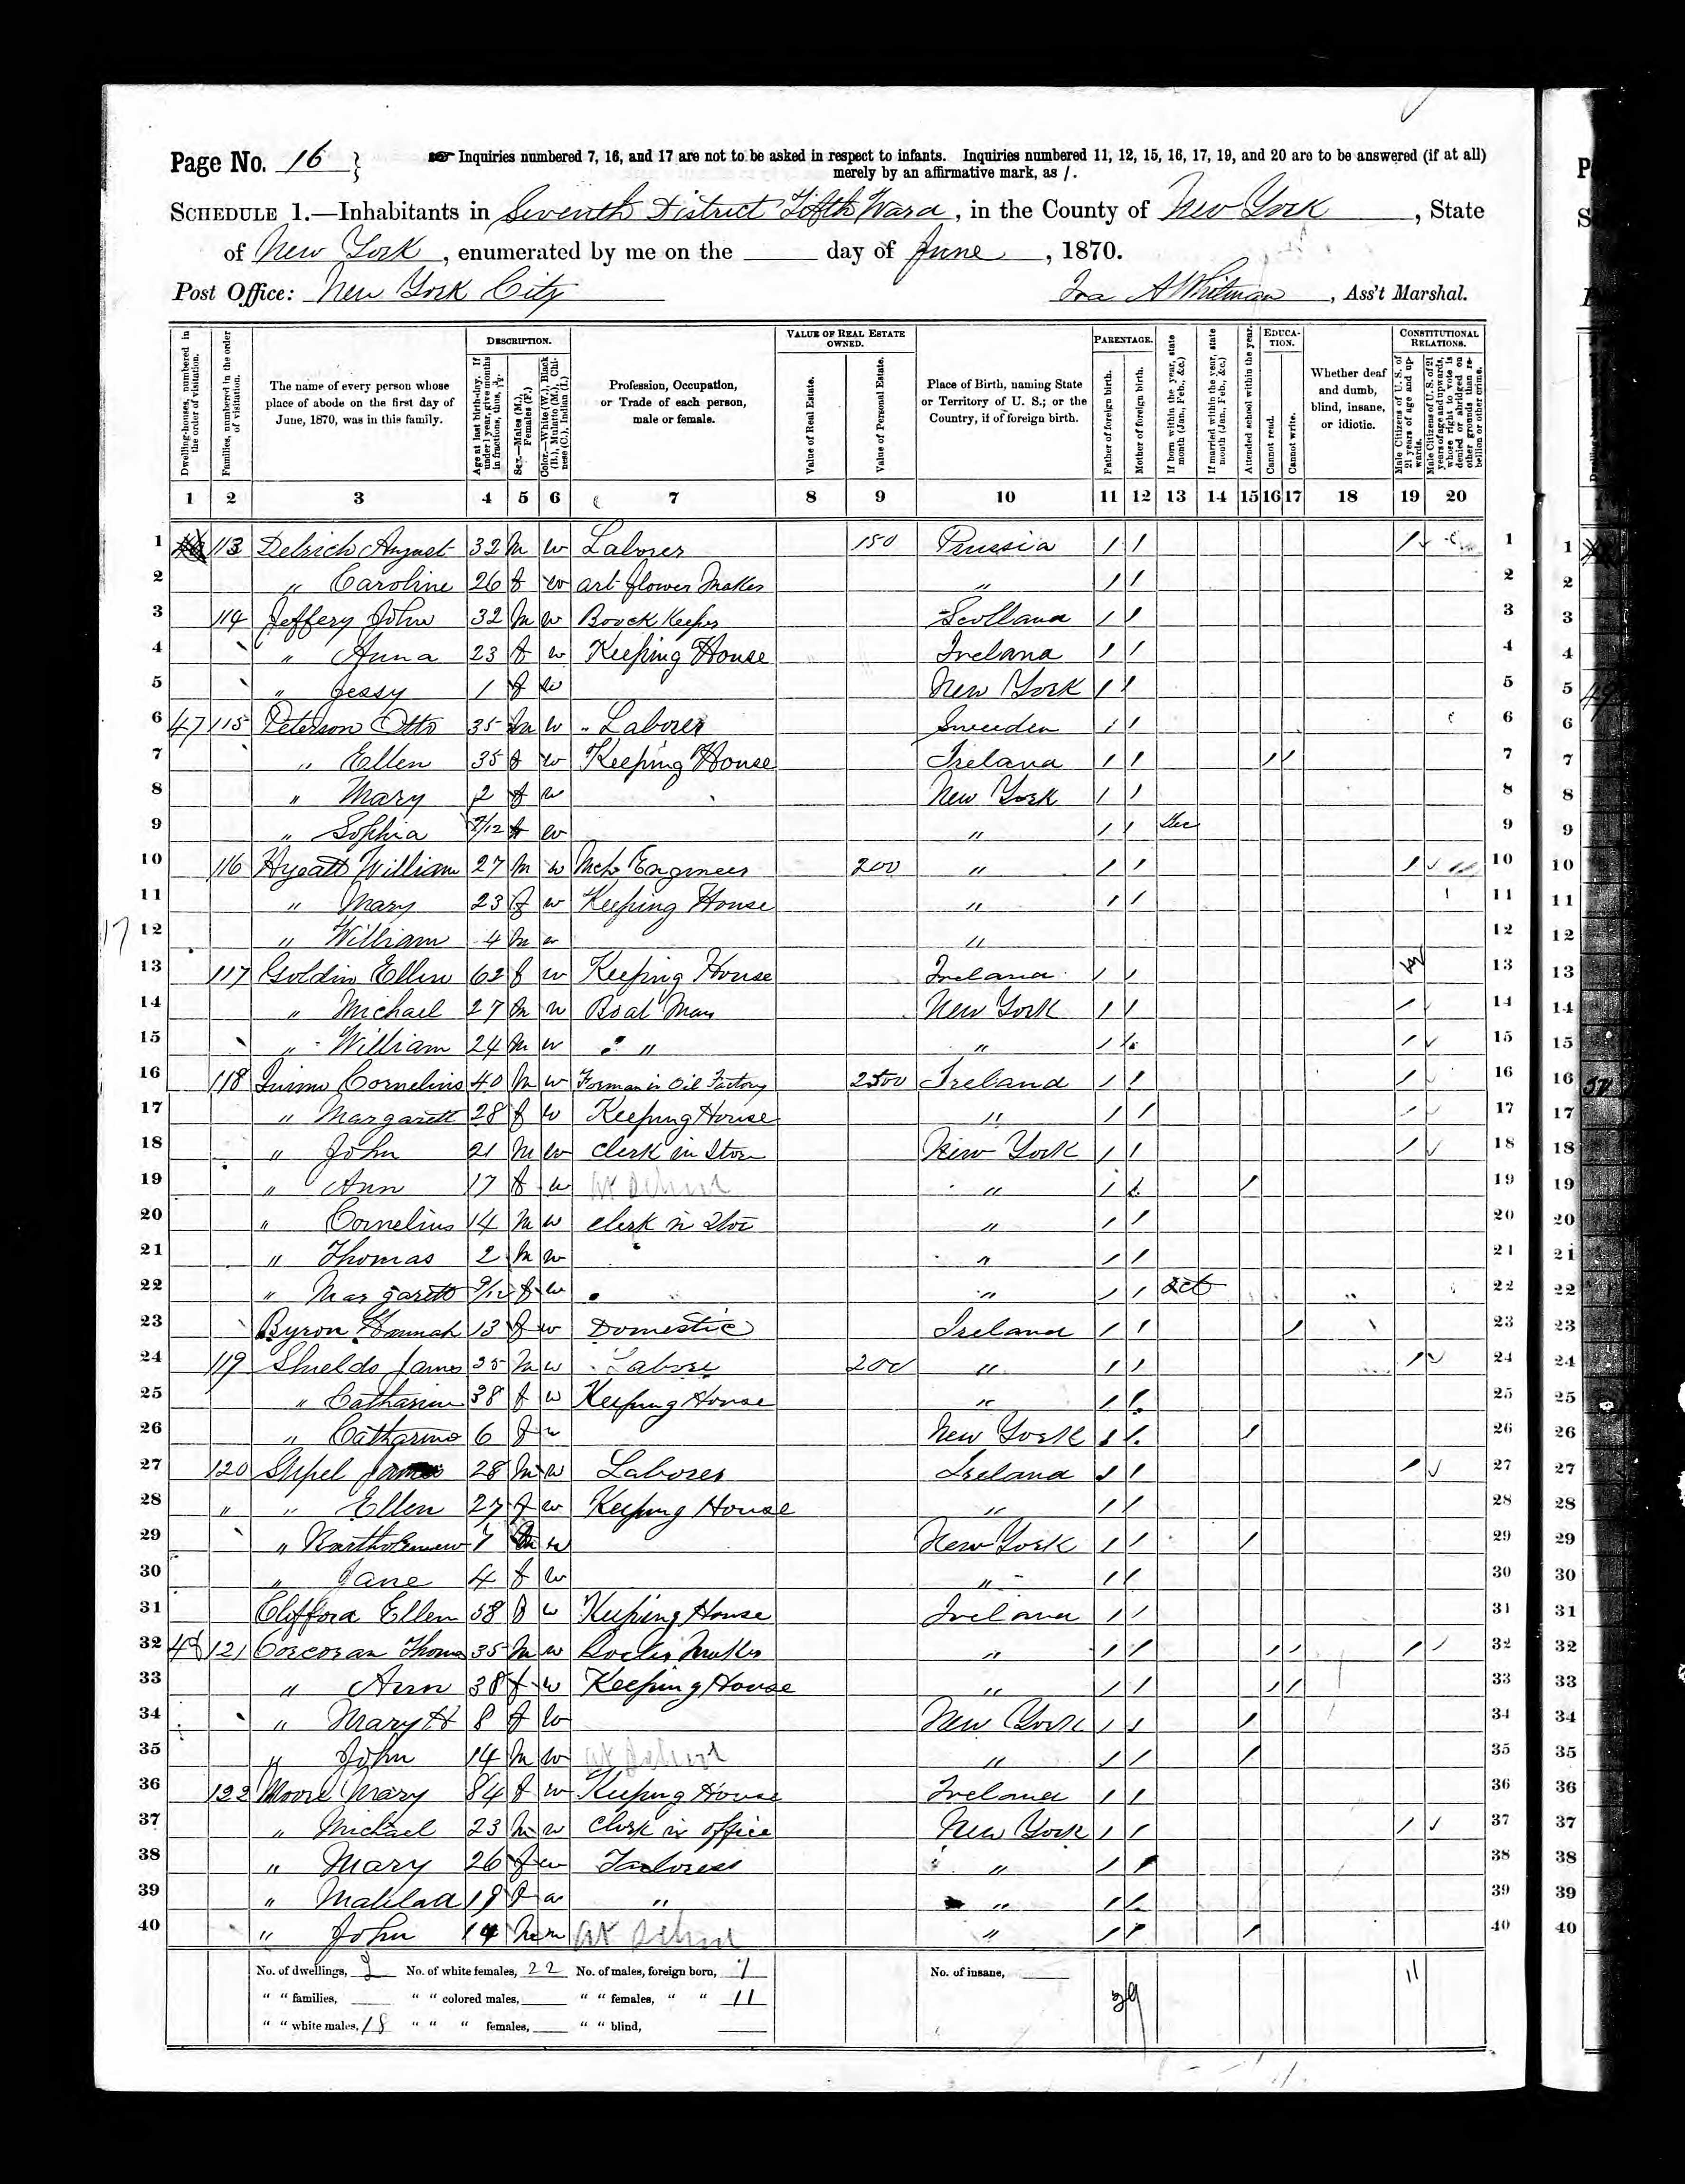 Page No. 16
Inquiries numbered 7, 16, and 17 are not to be asked in respect to infants. Inquiries numbered 11, 12, 15, 16, 17, 19, and 20 are to be answered (if at all)
merely by an affirmative mark, as /.
SCHEDULE 1.—Inhabitants in Seventh District Fifth Ward, in the County of New York, State
of New York, enumerated by me on the day of June, 1870.
Post Office: New York City Ira A Whitman, Ass't Marshal.
Dwelling-houses, numbered in the order of visitation.
Families, numbered in the order of visitation.
The name of every person whose place of abode on the first day of June, 1870, was in this family.
DESCRIPTION.
Age at last birth-day. If under 1 year, give months in fractions, thus, 3/12.
Sex.—Males (M.), Females (F.)
Color.—White (W.), Black (B.), Mulatto (M.), Chinese (C.), Indian (I.)
Profession, Occupation, or Trade of each person, male or female.
VALUE OF REAL ESTATE OWNED.
Value of Real Estate.
Value of Personal Estate.
Place of Birth, naming State or Territory of U. S.; or the Country, if of foreign birth.
PARENTAGE.
Father of foreign birth.
Mother of foreign birth.
If born within the year, state month (Jan., Feb., &c.)
If married within the year, state month (Jan., Feb., &c.)
Attended school within the year.
EDUCATION.
Cannot read.
Cannot write.
Whether deaf and dumb, blind, insane, or idiotic.
CONSTITUTIONAL RELATIONS.
Male Citizens of U. S. of 21 years of age and upwards.
Male Citizens of U. S. of 21 years of age and upwards, whose right to vote is denied or abridged on other grounds than rebellion or other crime.
1 2 3 4 5 6 7 8 9 10 11 12 13 14 15 16 17 18 19 20
1 113 Detrich August 32 m w Laborer 150 Prussia / / / 1
2 " Caroline 26 f w art flower Maker " / / 2
3 114 Jeffery John 32 m w Boock Keeper Scotland / / 3
4 " Anna 23 f w Keeping House Ireland / / 4
5 " Jessy 1 f w New York / / 5
6 47 115 Peterson Otto 35 m w Laborer Sweeden / / 6
7 " Ellen 35 f w Keeping House Ireland / / / / 7
8 " Mary 2 f w New York / / 8
9 " Sophia 7/12 f w " / / Dec 9
10 116 Hyeatt William 27 m w Mch Engineer 200 " / / / 10
11 " Mary 23 f w Keeping House " / / 11
12 " William 4 m w " 12
13 117 Goldin Ellen 62 f w Keeping House Ireland / / 13
14 " Michael 27 m w Boat Man New York / / / 14
15 " William 24 m w " " / / / 15
16 118 Quinn Cornelius 40 m w Forman in Oil Factory 2500 Ireland / / / 16
17 " Margarett 28 f w Keeping House " / / / 17
18 " John 21 m w clerk in Store New York / / / 18
19 " Ann 17 f w at School " / / / 19
20 " Cornelius 14 m w clerk in Store " / / 20
21 " Thomas 2 m w " / / 21
22 " Margarett 9/12 f w " / / Oct 22
23 Byron Hannah 13 f w Domestic Ireland / / / 23
24 119 Shields James 35 m w Labore 200 " / / / 24
25 " Catharine 38 f w Keeping House " / / 25
26 " Catharine 6 f w New York / / / 26
27 120 28 m w Laborer Ireland / / / 27
28 " " Ellen 27 f w Keeping House " / / 28
29 " Bartholemew 7 m w New York / / / 29
30 " Jane 4 f w " / / 30
31 Clifford Ellen 58 f w Keeping House Ireland / / 31
32 48 121 Corcoran Thomas 35 m w Maker " / / / / / 32
33 " Ann 38 f w Keeping House " / / / / 33
34 " Mary H 8 f w New York / / / 34
35 " John 14 m w at School " / / / 35
36 122 Moore Mary 84 f w Keeping House Ireland / / 36
37 " Michael 23 m w Clerk in office New York / / / 37
38 " Mary 26 f w Tailoress " / / 38
39 " Matilda 19 f w " " / / 39
40 " John 14 m w at School " / / / 40
17
No. of dwellings, 2 No. of white females, 22 No. of males, foreign born, 7 No. of insane, 39 11
" " families, " " colored males, " " females, " " 11
" " white males, 18 " " " females, " " blind,